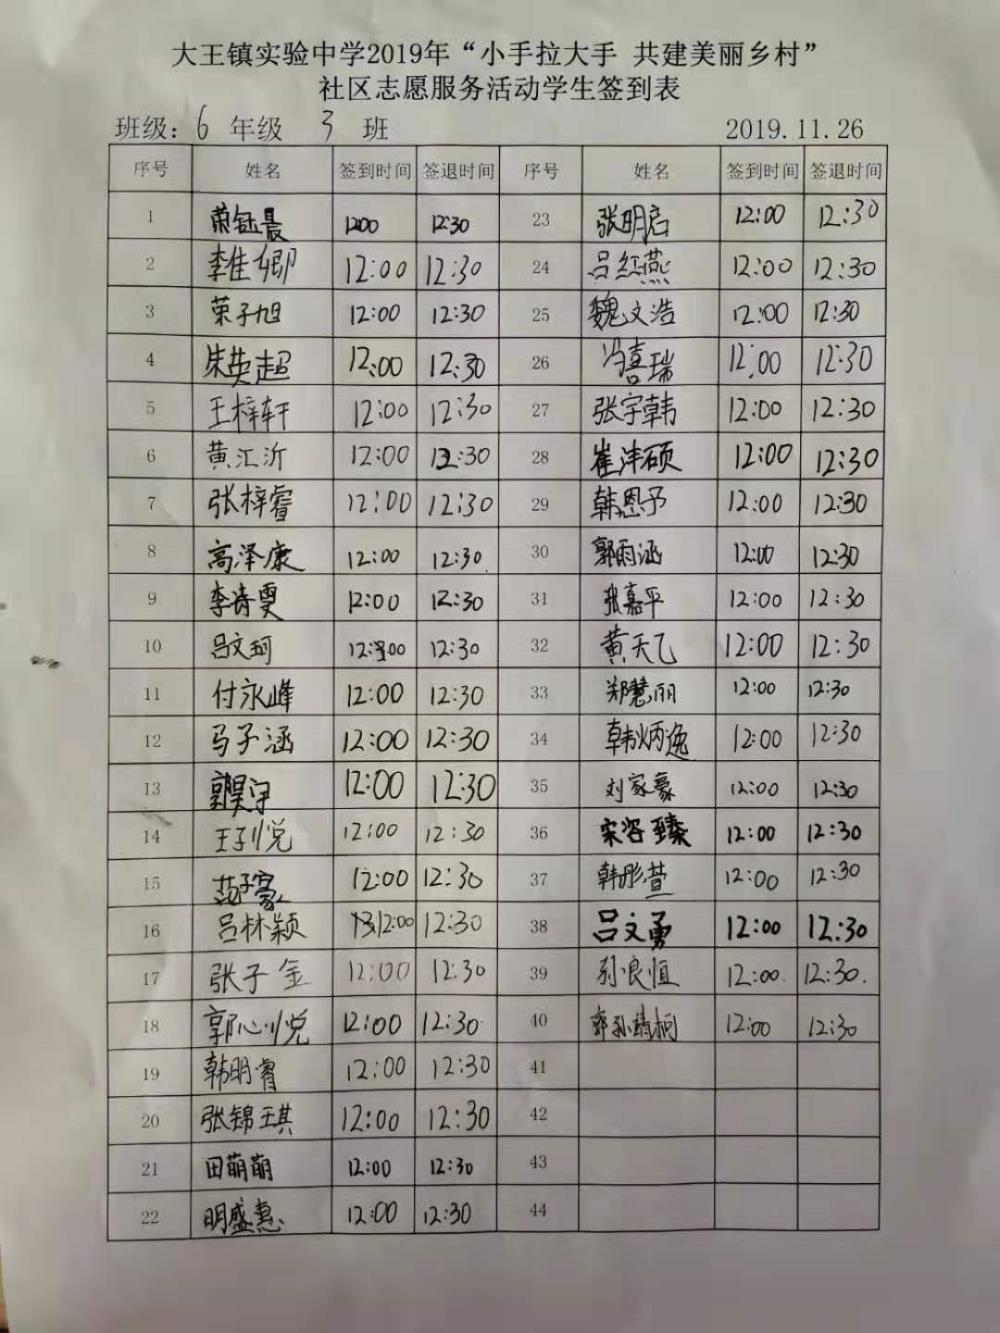 大王镇实验中学2019年“小手拉大手 共建美丽乡村”
社区志愿服务活动学生签到表
班级：6 年级 3 班 2019.11.26
序号 姓名 签到时间 签退时间 序号 姓名 签到时间 签退时间
1 荣钰晨 1200 12:30 23 张明启 12:00 12:30
2 李佳卿 12:00 12:30 24 吕红燕 12:00 12:30
3 荣子旭 12:00 12:30 25 魏文浩 12:00 12:30
4 朱英超 12:00 12:30 26 冯喜瑞 12:00 12:30
5 王梓轩 12:00 12:30 27 张宇韩 12:00 12:30
6 黄汇沂 12:00 12:30 28 崔沣硕 12:00 12:30
7 张梓睿 12:00 12:30 29 韩恩予 12:00 12:30
8 高泽康 12:00 12:30 30 郭雨涵 12:00 12:30
9 李诗雯 12:00 12:30 31 张嘉平 12:00 12:30
10 吕文珂 12:00 12:30 32 黄天乙 12:00 12:30
11 付永峰 12:00 12:30 33 郑慧丽 12:00 12:30
12 马子涵 12:00 12:30 34 韩炳逸 12:00 12:30
13 郭昊宇 12:00 12:30 35 刘家豪 12:00 12:30
14 王子悦 12:00 12:30 36 宋咨臻 12:00 12:30
15 范子豪 12:00 12:30 37 韩彤萱 12:00 12:30
16 吕林颖 12:00 12:30 38 吕文勇 12:00 12:30
17 张子金 12:00 12:30 39 孙良恒 12:00 12:30
18 郭心悦 12:00 12:30 40 12:00 12:30
19 韩明睿 12:00 12:30 41
20 张锦琪 12:00 12:30 42
21 田萌萌 12:00 12:30 43
22 明盛惠 12:00 12:30 44